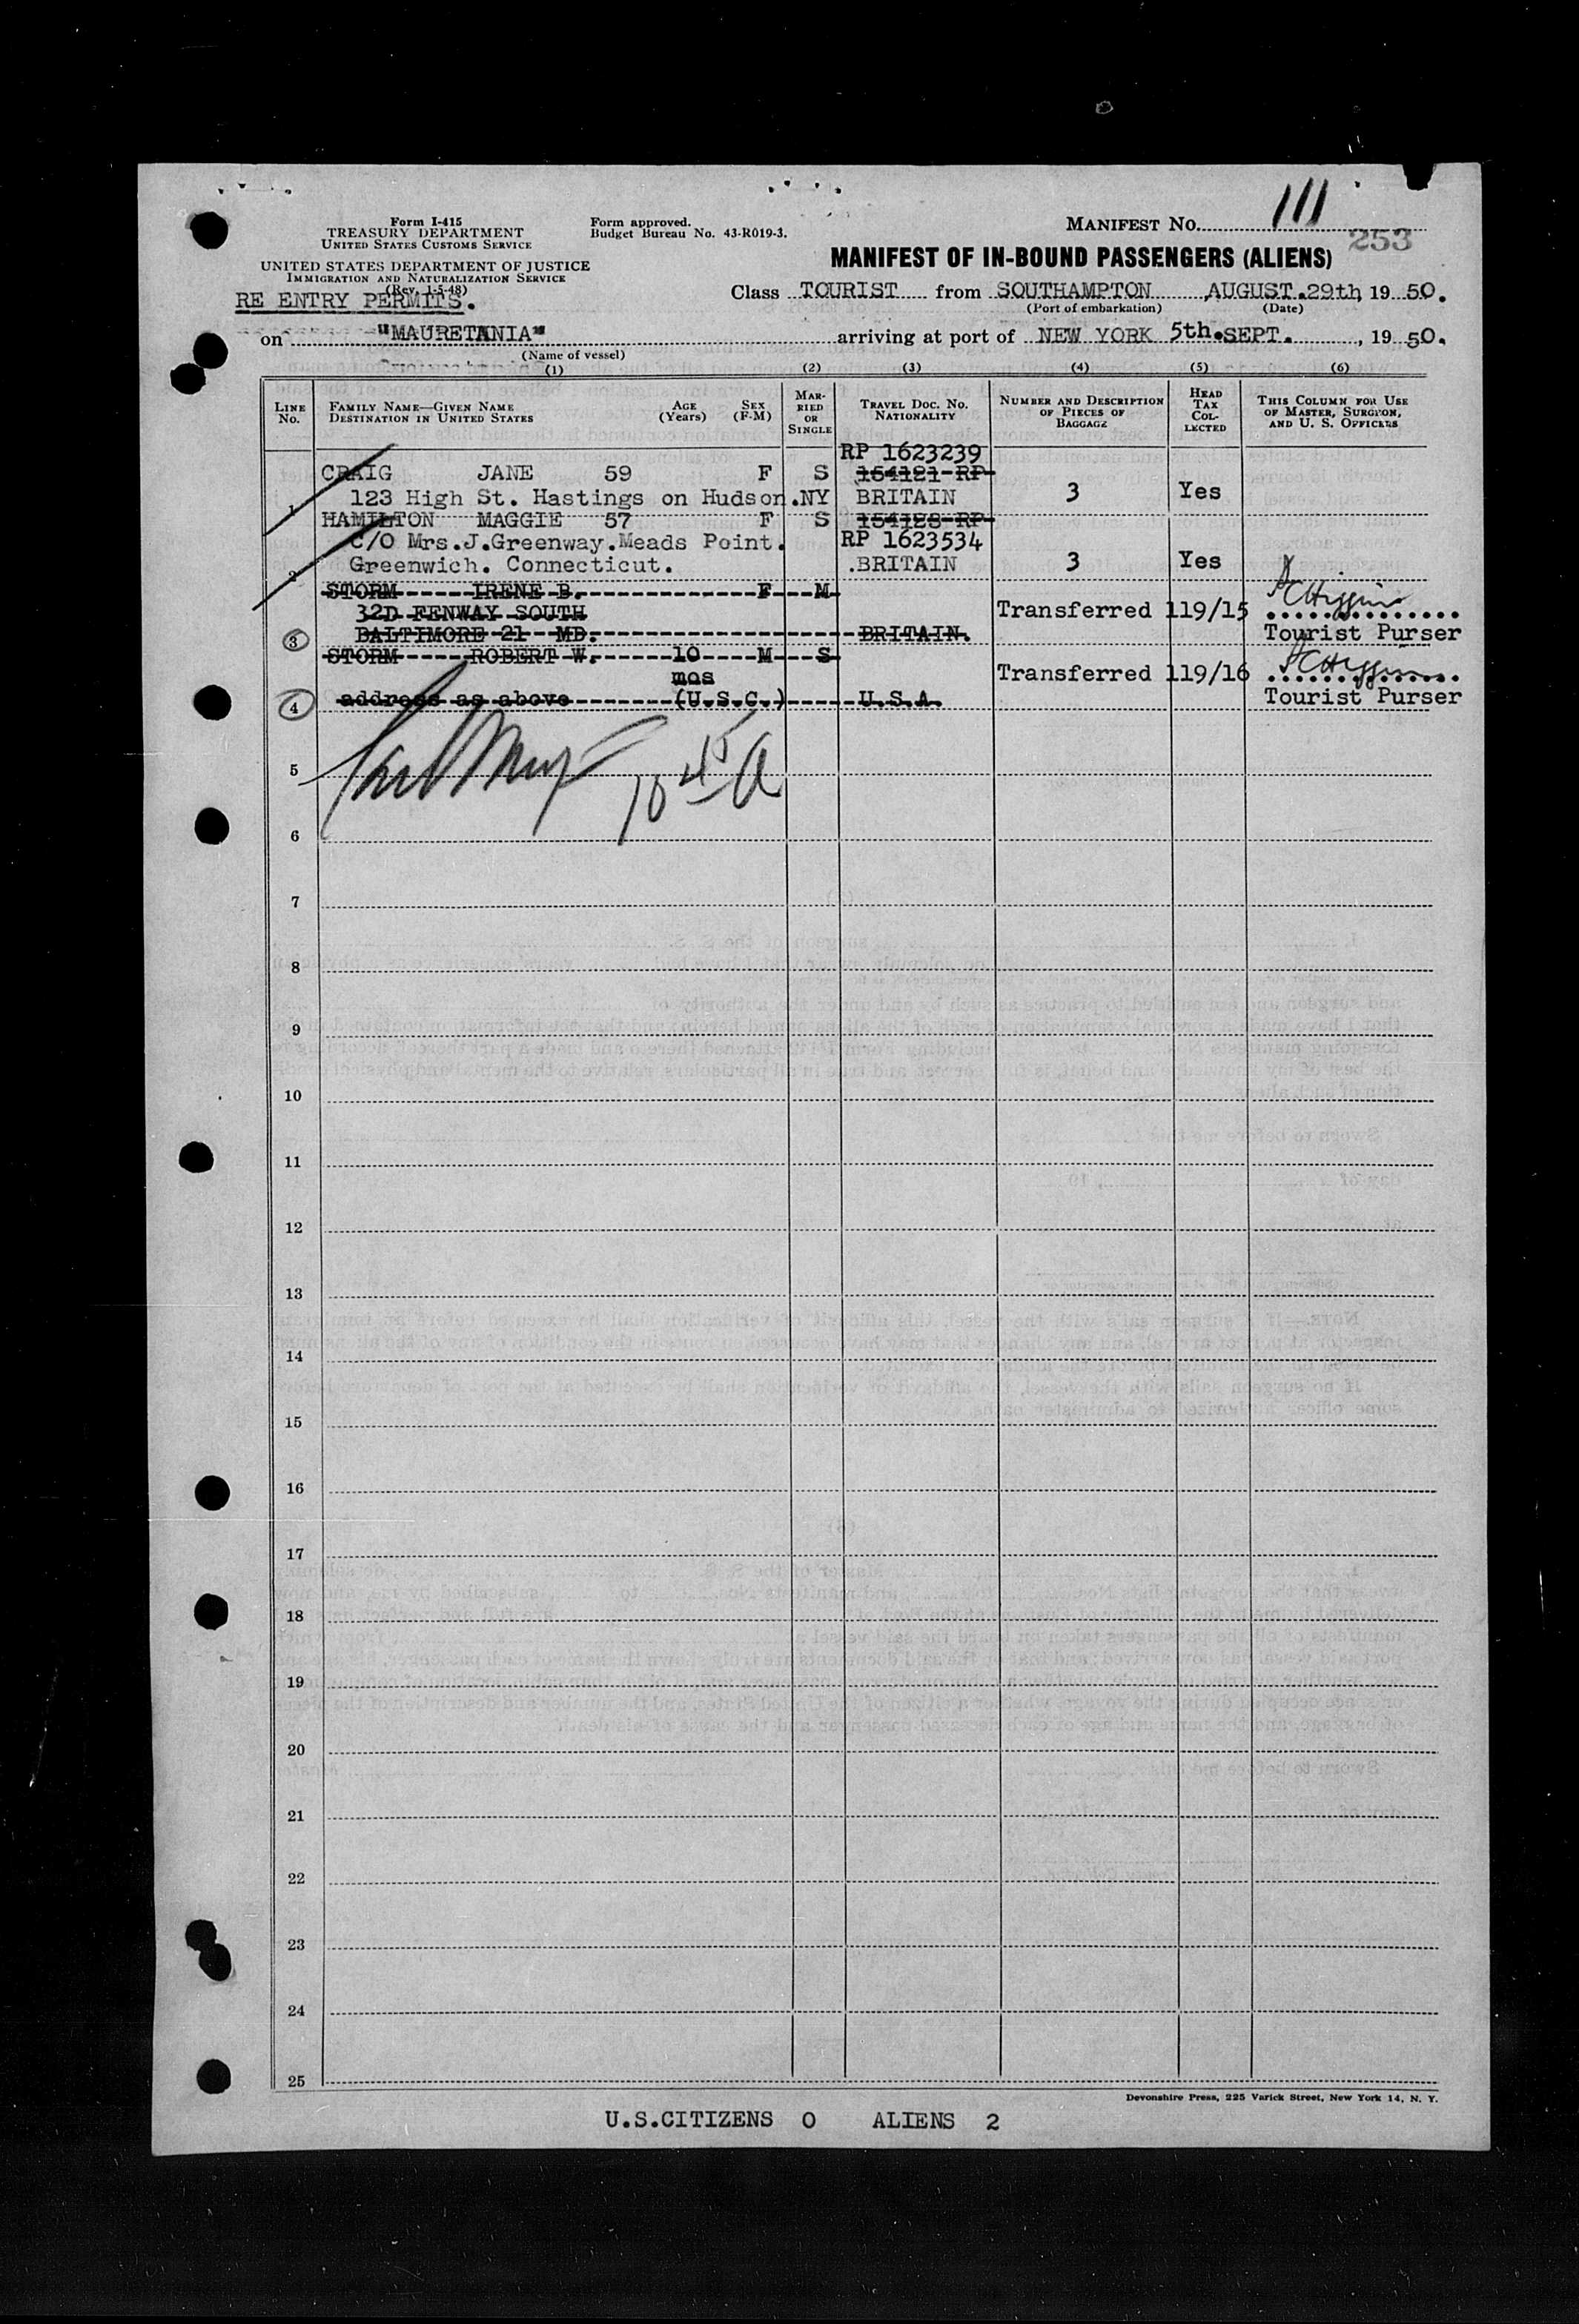 Form I-415
TREASURY DEPARTMENT
UNITED STATES CUSTOMS SERVICE
Form approved.
Budget Bureau No. 43-R019-3.
MANIFEST NO. 111
253
UNITED STATES DEPARTMENT OF JUSTICE
IMMIGRATION AND NATURALIZATION SERVICE
(Rev. 1-5-48)
RE ENTRY PERMITS.
MANIFEST OF IN-BOUND PASSENGERS (ALIENS)
Class TOURIST from SOUTHAMPTON AUGUST.29th, 1950.
(Port of embarkation) (Date)
on "MAURETANIA" arriving at port of NEW YORK 5th.SEPT., 1950.
(Name of vessel)
(1) (2) (3) (4) (5) (6)
LINE NO. FAMILY NAME—GIVEN NAME DESTINATION IN UNITED STATES AGE (Years) SEX (F-M) MARRIED OR SINGLE TRAVEL DOC. NO. NATIONALITY NUMBER AND DESCRIPTION OF PIECES OF BAGGAGE HEAD TAX COLLECTED THIS COLUMN FOR USE OF MASTER, SURGEON, AND U. S. OFFICERS
RP 1623239
CRAIG JANE 59 F S 154121 RP
1 123 High St. Hastings on Hudson.NY BRITAIN 3 Yes
HAMILTON MAGGIE 57 F S 154128 RP
C/O Mrs.J.Greenway.Meads Point. RP 1623534
2 Greenwich. Connecticut. .BRITAIN 3 Yes
STORM IRENE B. F M
32D FENWAY SOUTH Transferred 119/15
3 BALTIMORE 21 MD. BRITAIN. Tourist Purser
STORM ROBERT W. 10 M S
mos Transferred 119/16
4 address as above (U.S.C.) U.S.A. Tourist Purser
5
10 45 A
6
7
8
9
10
11
12
13
14
15
16
17
18
19
20
21
22
23
24
25
Devonshire Press, 225 Varick Street, New York 14, N. Y.
U.S.CITIZENS 0 ALIENS 2